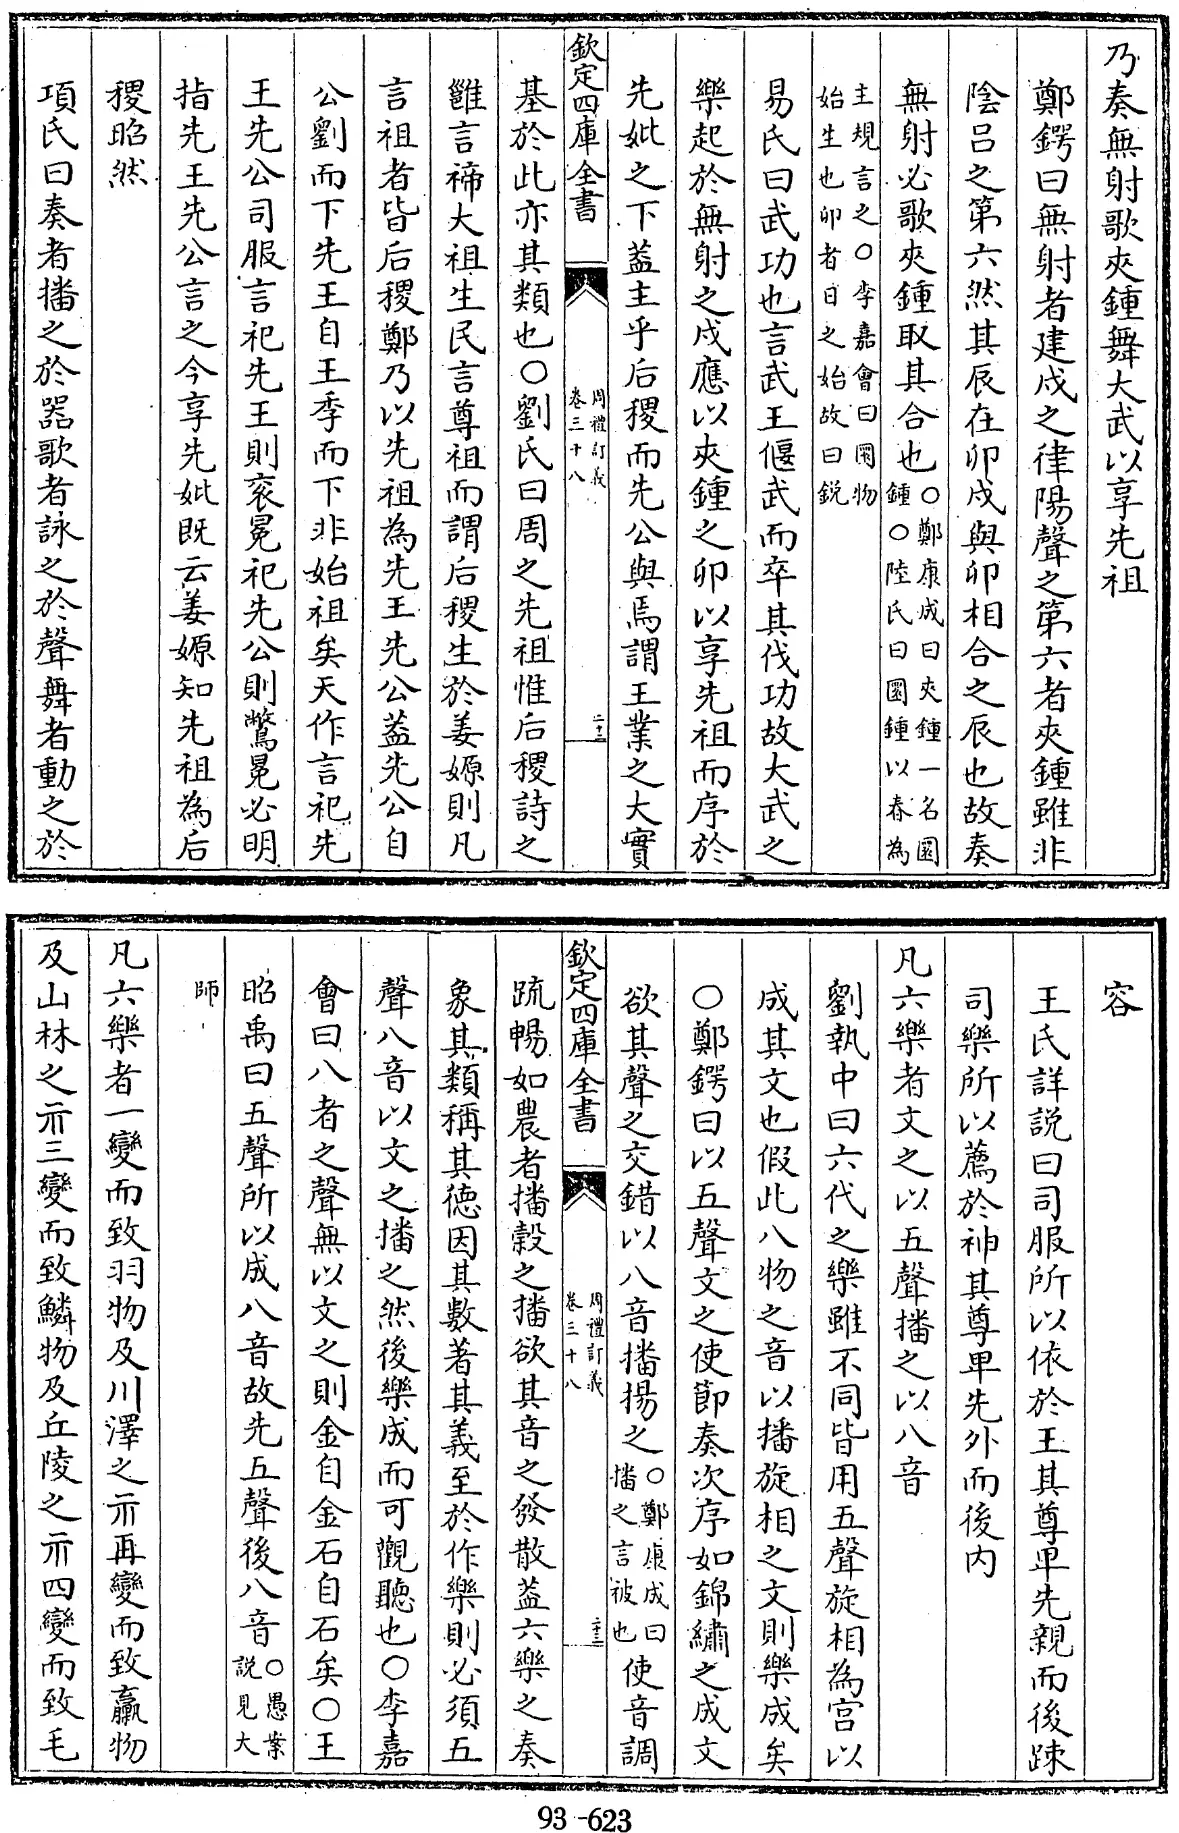 乃奏無射歌夾鍾舞大武以享先祖
鄭鍔曰無射者建戌之律陽聲之第六者夾鍾雖非
陰呂之第六然其辰在卯戌與卯相合之辰也故奏
無射必歌夾鍾取其合也○鄭康成曰夾鍾一名圜鍾○陸氏曰圜鍾以春為
主規言之○李嘉會曰圜物始生也卯者日之始故曰鋭
易氏曰武功也言武王偃武而卒其伐功故大武之
樂起於無射之戌應以夾鍾之卯以享先祖而序於
先妣之下葢主乎后稷而先公與焉謂王業之大實
欽定四庫全書
周禮訂義
卷三十八
二十二
基於此亦其類也○劉氏曰周之先祖惟后稷詩之
雝言禘大祖生民言尊祖而謂后稷生於姜嫄則凡
言祖者皆后稷鄭乃以先祖為先王先公葢先公自
公劉而下先王自王季而下非始祖矣天作言祀先
王先公司服言祀先王則衮冕祀先公則鷩冕必明
指先王先公言之今享先妣既云姜嫄知先祖為后
稷昭然
項氏曰奏者播之於器歌者詠之於聲舞者動之於
容
王氏詳説曰司服所以依於王其尊卑先親而後踈
司樂所以薦於神其尊卑先外而後内
凡六樂者文之以五聲播之以八音
劉執中曰六代之樂雖不同皆用五聲旋相為宫以
成其文也假此八物之音以播旋相之文則樂成矣
○鄭鍔曰以五聲文之使節奏次序如錦繡之成文
欲其聲之交錯以八音播揚之○鄭康成曰播之言被也使音調
欽定四庫全書
周禮訂義
卷三十八
二十三
疏暢如農者播穀之播欲其音之發散葢六樂之奏
象其類稱其德因其數著其義至於作樂則必須五
聲八音以文之播之然後樂成而可觀聽也○李嘉
會曰八者之聲無以文之則金自金石自石矣○王
昭禹曰五聲所以成八音故先五聲後八音○愚案説見大
師
凡六樂者一變而致羽物及川澤之示再變而致臝物
及山林之示三變而致鱗物及丘陵之示四變而致毛
93-623